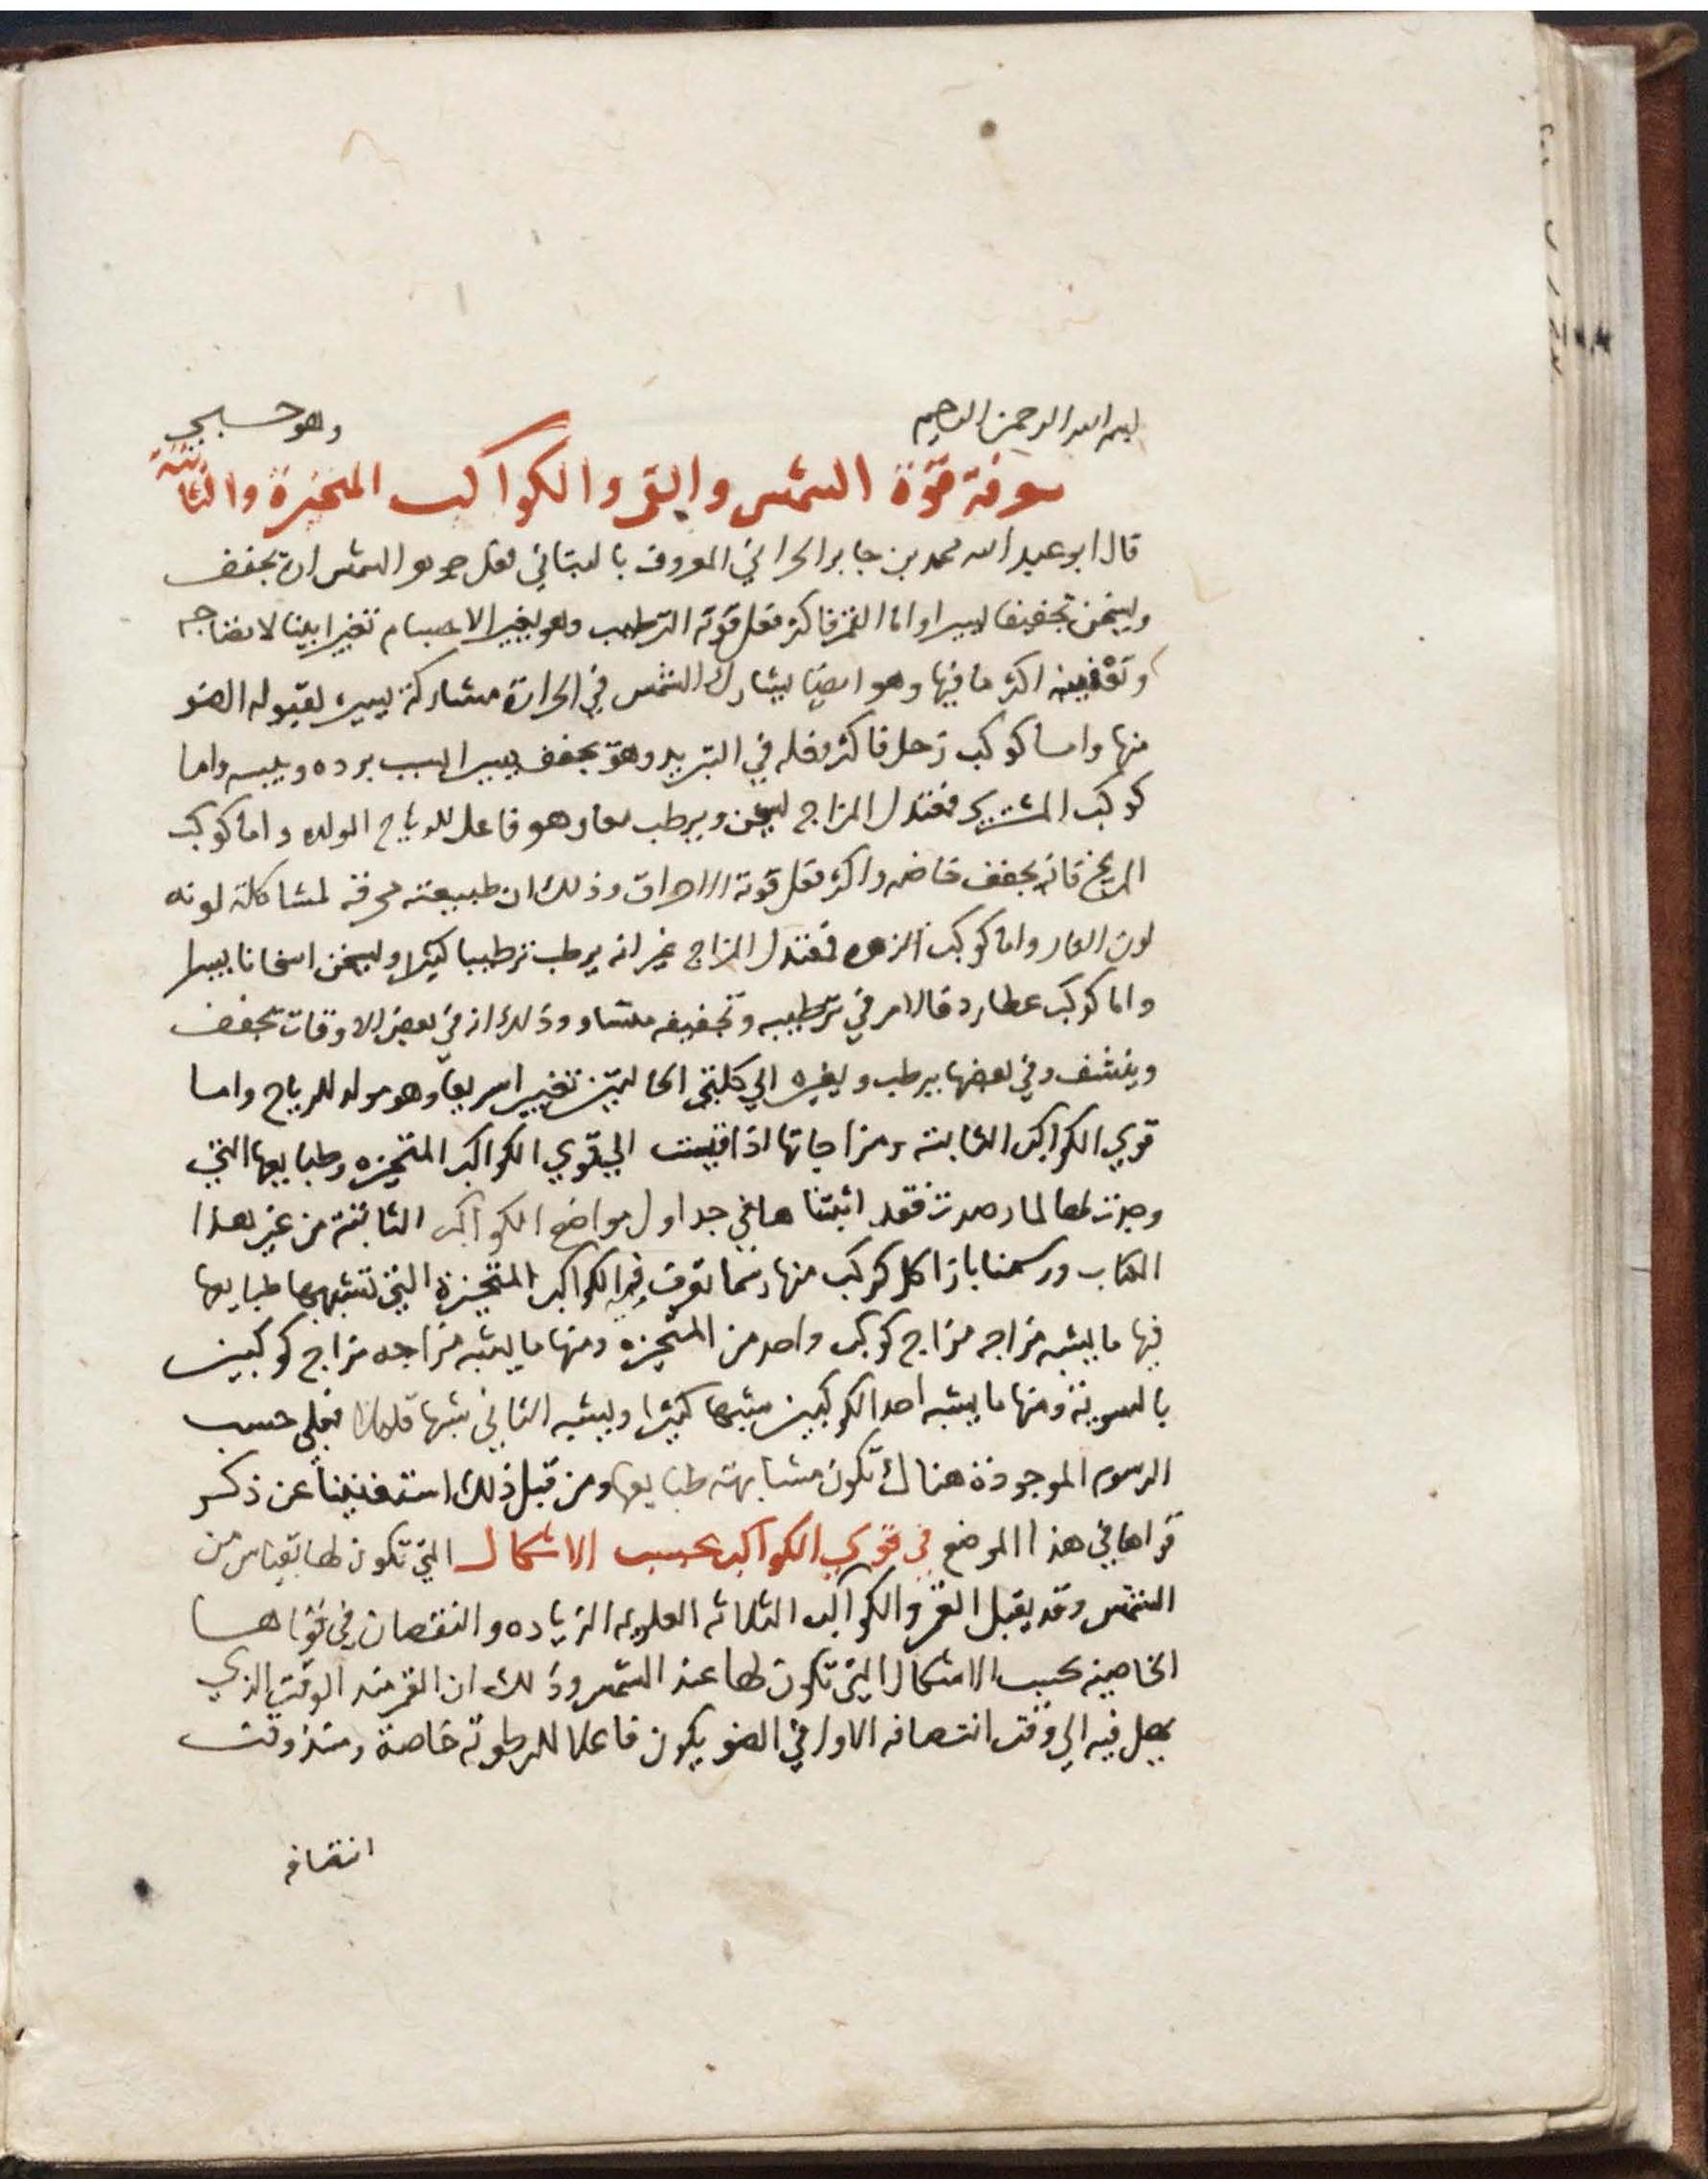 بسم الله الرحمن الرحيم وهو حسبي
معرفة قوة الشمس والقمر والكواكب المتحيزة والثابتة
قال ابو عبد الله محمد بن جابر الحراني المعروف بالبتاني فعل الشمس ان تجفف
وليسخن تجفيفا يسيرا واما القمر فاكثر فعل قوته الترطيب وهو يغير الاجسام تغيرا بينا لانضاجه
وتعفينه اكثر ما فيها وهو ايضا يشارك الشمس في الحرارة مشاركة يسيرة لقبوله الضو
منها واما كوكب زحل فاكثر فعله في التبريد وهو يجفف يسيرا لسبب برده ويبسه واما
كوكب المشتري فمعتدل المزاج يسخن ويرطب معا وهو فاعل للرياح المولده واما كوكب
المريخ فانه يجفف خاصه واكثر فعل قوته الاحراق وذلك ان طبيعته محرقه لمشاكلة لونه
لون النار واما كوكب الزهره فمعتدل المزاج غير انه يرطب ترطيبا كثيرا ويسخن اسخانا يسيرا
واما كوكب عطارد فالامر في ترطيبه وتجفيفه متساو وذلك انه في بعض الاوقات يجفف
وينشف وفي بعضها يرطب ويغيره الي كلتي الحالتين تغييرا سريعا وهو مولد للرياح واما
قوي الكواكب الثابته ومزاجاتها اذا قيست الي قوي الكواكب المتحيزه وطبايعها التي
وجدت لها لما رصدت فقد اثبتناها في جداول مواضع الكواكب الثابتة من غير هذا
الكتاب ورسمنا بازا كل كوكب منها رسما تعرف به الكواكب المتحيزة التي تشبهها طبايعها
فيها ما يشبه مزاجه مزاج كوكب واحد من المتحيزه ومنها ما يشبه مزاجه مزاج كوكبين
بالسوية ومنها ما يشبه احد الكوكبين شبها كثيرا ويشبه الثاني شبها قليلا فعلي حسب
الرسوم الموجودة هناك تكون مشابهته طبايعها ومن قبل ذلك استغنينا عن ذكر
قواها في هذا الموضع في قوي الكواكب بحسب الاشكال التي تكون لها بقياس من
الشمس وقد يقبل القمر والكواكب الثلاثه العلويه الزياده والنقصان في قواها
الخاصيه بحسب الاشكال التي تكون لها عند الشمس وذلك ان القمر منذ الوقت الذي
يهل فيه الي وقت انتصافه الاول في الضو يكون فاعلا للرطوبة خاصة ومنذ وقت
انتصافه